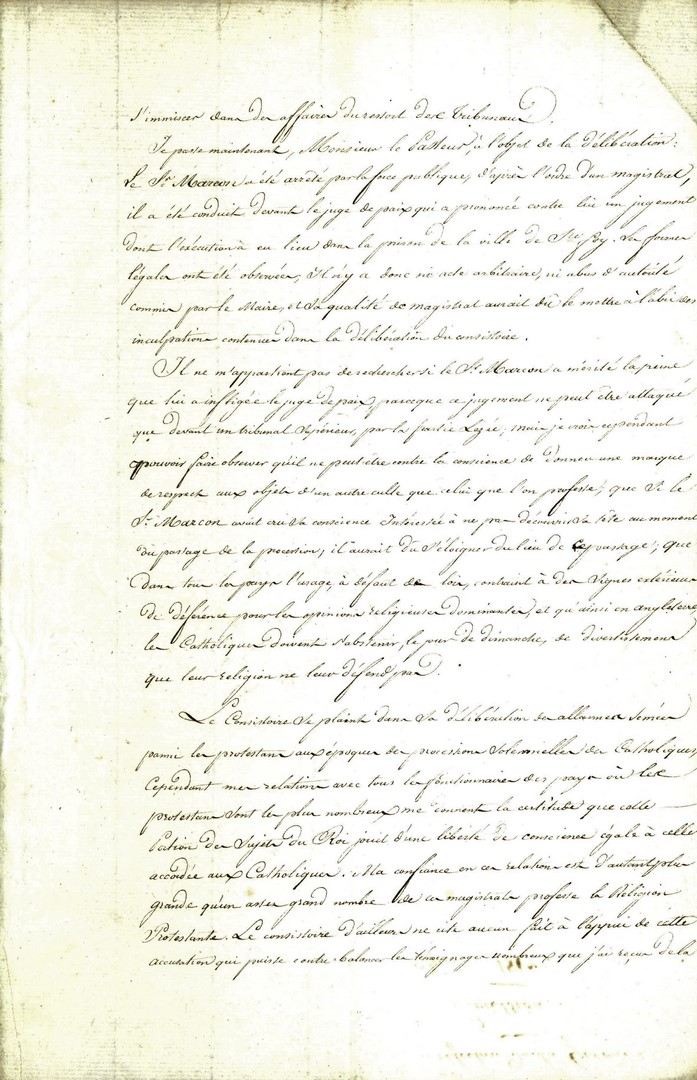 s'immiscer dans des affaires du ressort des Tribunaux.
Je passe maintenant, Monsieur le Pasteur, à l'objet de la délibération:
Le Sr. Marcon a été arrêté par la force publique, d'après l'ordre d'un magistrat,
il a été conduit devant le juge de paix qui a prononcé contre lui un jugement
dont l'exécution à eu lieu dans la prison de la ville de Ste foy. Les formes
légales ont été observées, Il n'y a donc ni acte arbitraire, ni abus d'autorité
commis par le Maire, et sa qualité de magistrat aurait dû le mettre à l'abri des
inculpations contenues dans la délibération du consistoire.
Il ne m'appartient pas de rechercher si le Sr. Marcon a mérité la peine
que lui a infligée le juge de paix, parceque ce jugement ne peut être attaqué
que devant un tribunal Supérieur, par la partie Lezée; mais je crois cependant
pouvoir faire observer qu'il ne peut être contre la conscience de donner une marque
de respect aux objets d'un autre culte que celui que l'on professe; que Si le
Sr. Marcon avait cru sa conscience Intéressée à ne pas découvrir Sa tête au moment
du passage de la procession, il aurait dû S'éloigner du lieu de ce passage; que
dans tous les pays l'usage, à défaut de loix, contraint à des Signes extérieurs
de déférence pour les opinions religieuses dominantes, et qu'ainsi en angleterre
les Catholiques doivent s'abstenir, le jour de dimanche, de divertissemens
que leur religion ne leur défend pas.
Le Consistoire Se plaint dans Sa délibération des allarmes Semées
parmi les protestans aux époques des processions Solemnelles des Catholiques,
Cependant mes relations avec tous les fonctionnaires des pays où les
protestans Sont les plus nombreux me donnent la certitude que cette
Portion des Sujets du Roi jouit d'une liberté de conscience égale à celle
accordée aux Catholiques. Ma confiance en ces relations est d'autant plus
grande qu'un assez grand nombre de ces magistrats professe la Réligion
Protestante. Le consistoire d'ailleurs ne cite aucun fait à l'appui de cette
accusation qui puisse contre-balancer les témoignages nombreux que j'ai reçus de la